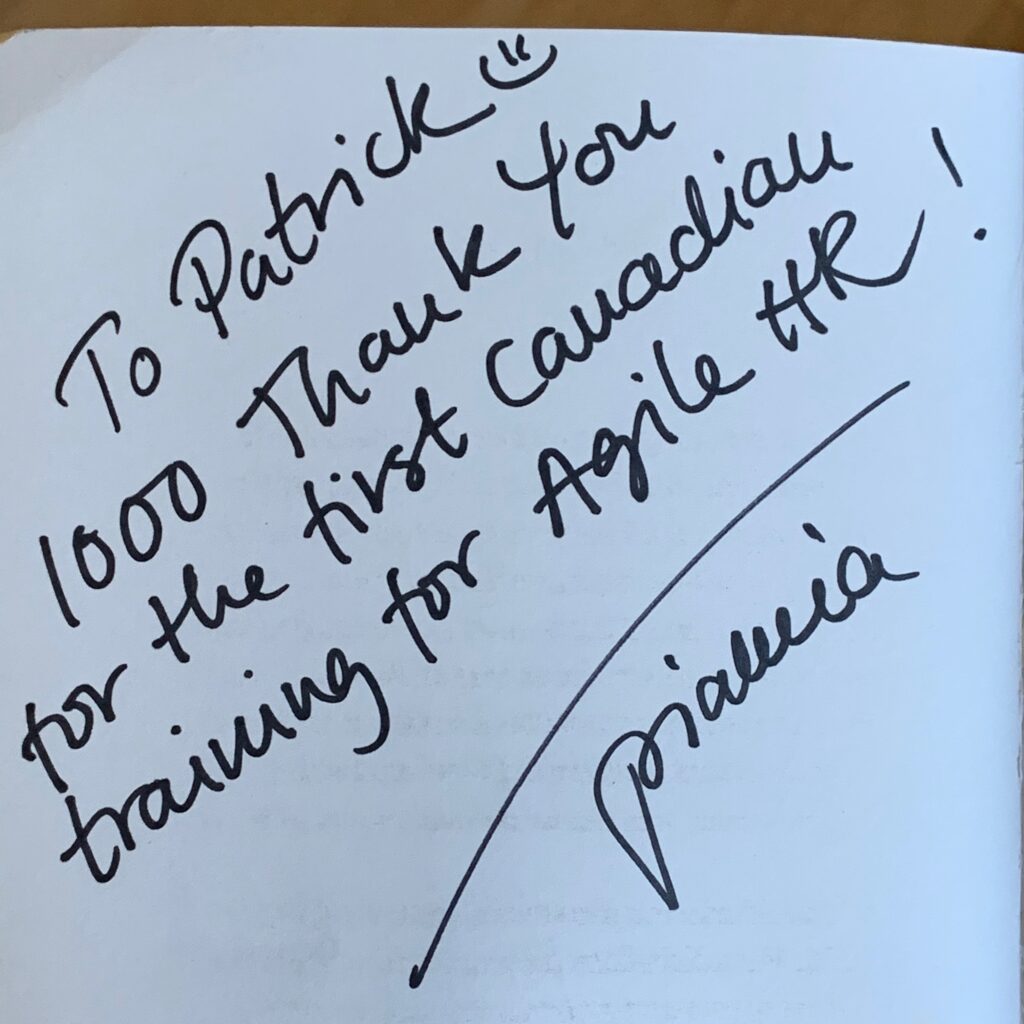 To Patrick
1000 Thank You
for the first Canadian
training for Agile HR!
piamia